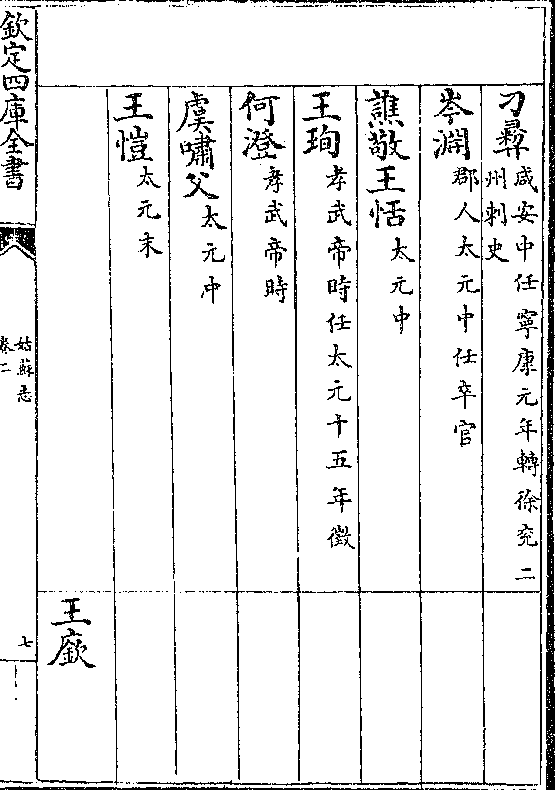 刁彞咸安中任寧康元年轉徐兖二
州刺史
岑淵郡人太元中任卒官
譙敬王恬太元中
王珣孝武帝時任太元十五年徵
何澄孝武帝時
虞嘯父太元中
王愷太元末
王廞
欽定四庫全書
姑蘇志
卷二
七